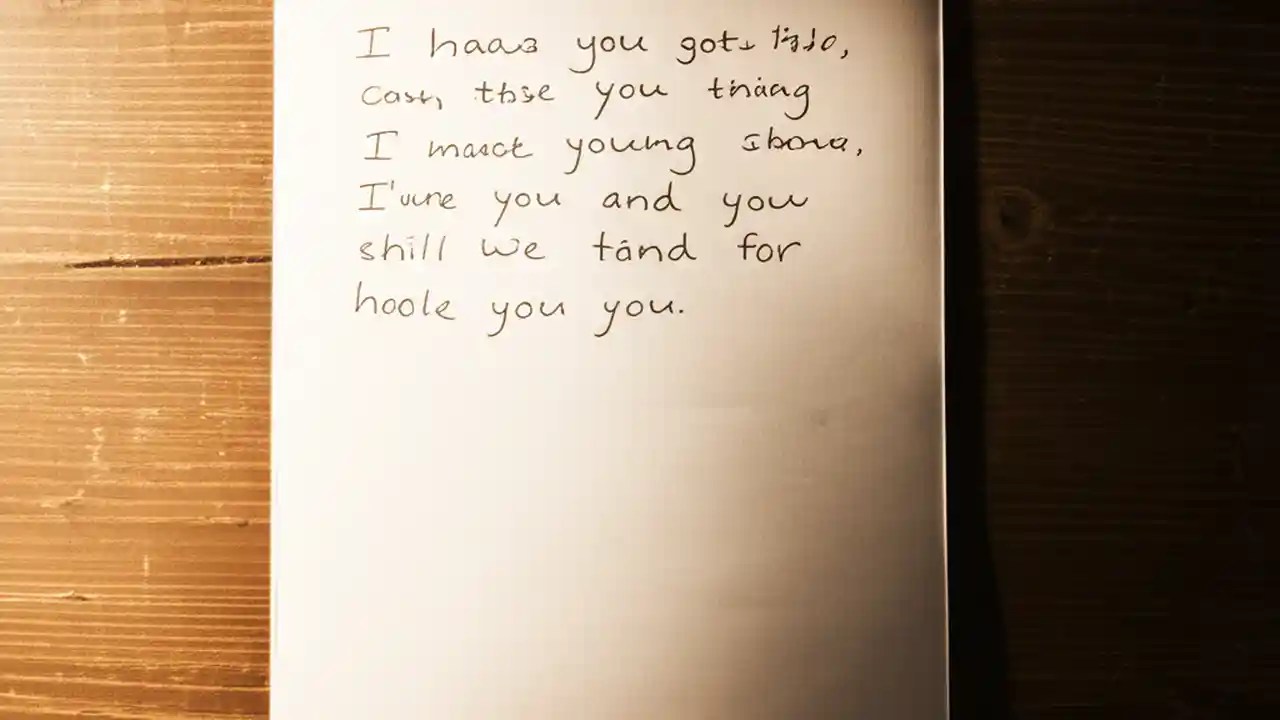 I haas you got
Cash, thse you thing
I mack young shova,
I'ure you and you
shill we tand for
hoole you you.